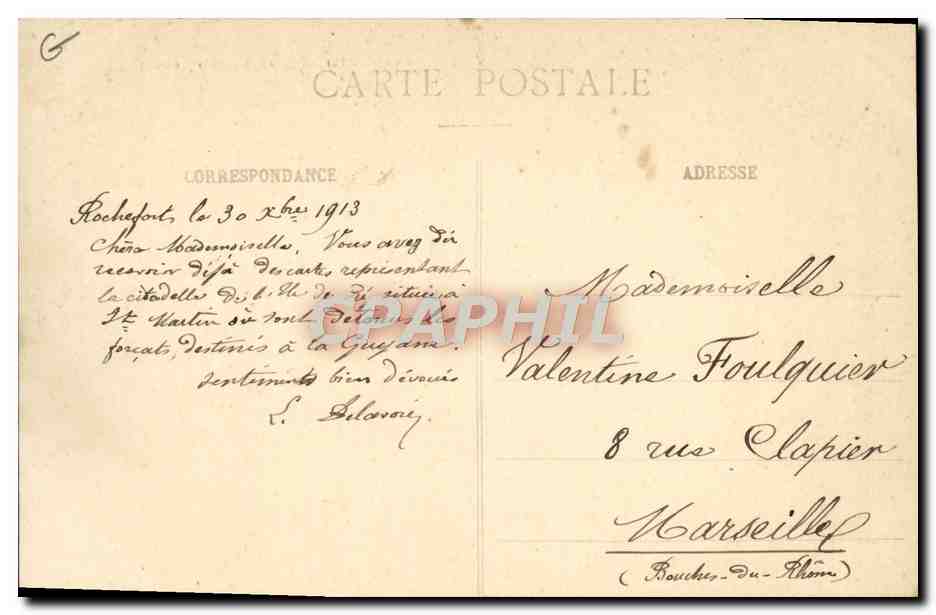 CARTE POSTALE
CORRESPONDANCE
ADRESSE
Rochefort, le 30 Xbre 1913
Chère Mademoiselle, Vous avez dû
recevoir déjà des cartes représentant
la citadelle de l'Ile de Ré située à
St Martin où sont détenus les
forçats, destinés à la Guyane.
Sentiments bien dévoués
Mademoiselle
Valentine Foulquier
8 rue Clapier
Marseille
(Bouches-du-Rhône)
CPAPHIL